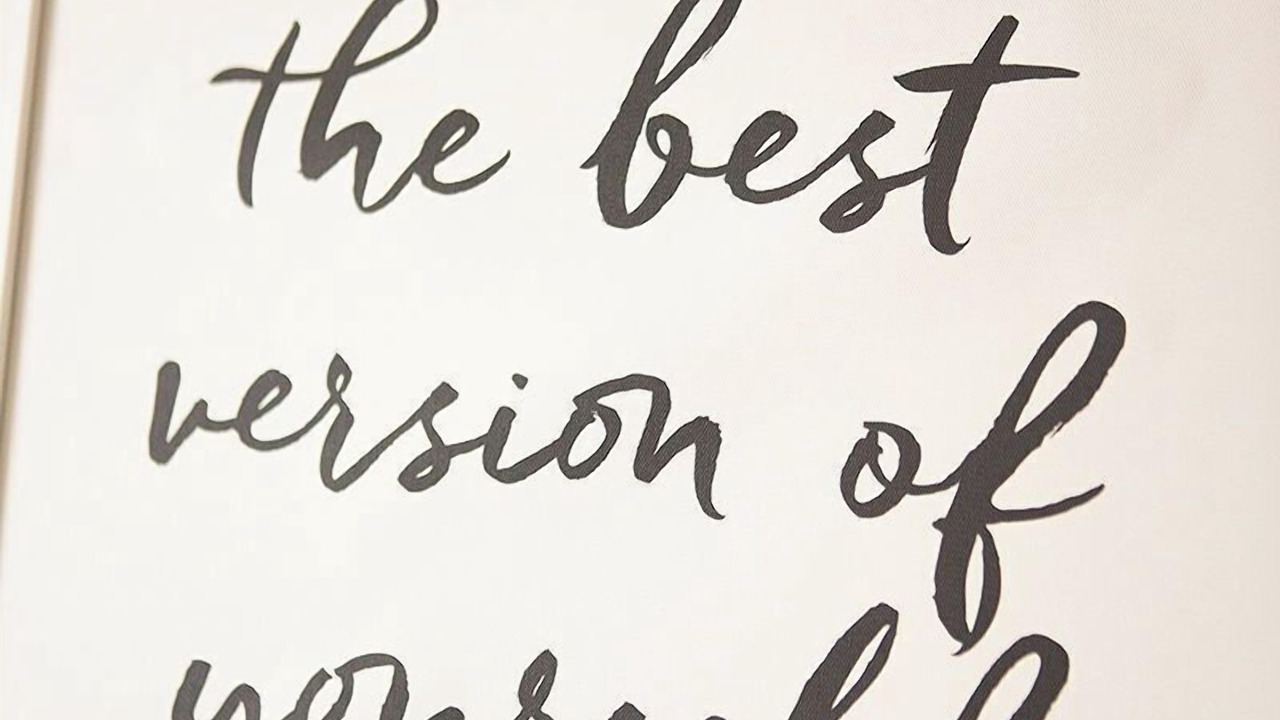 the best
version of
yourself